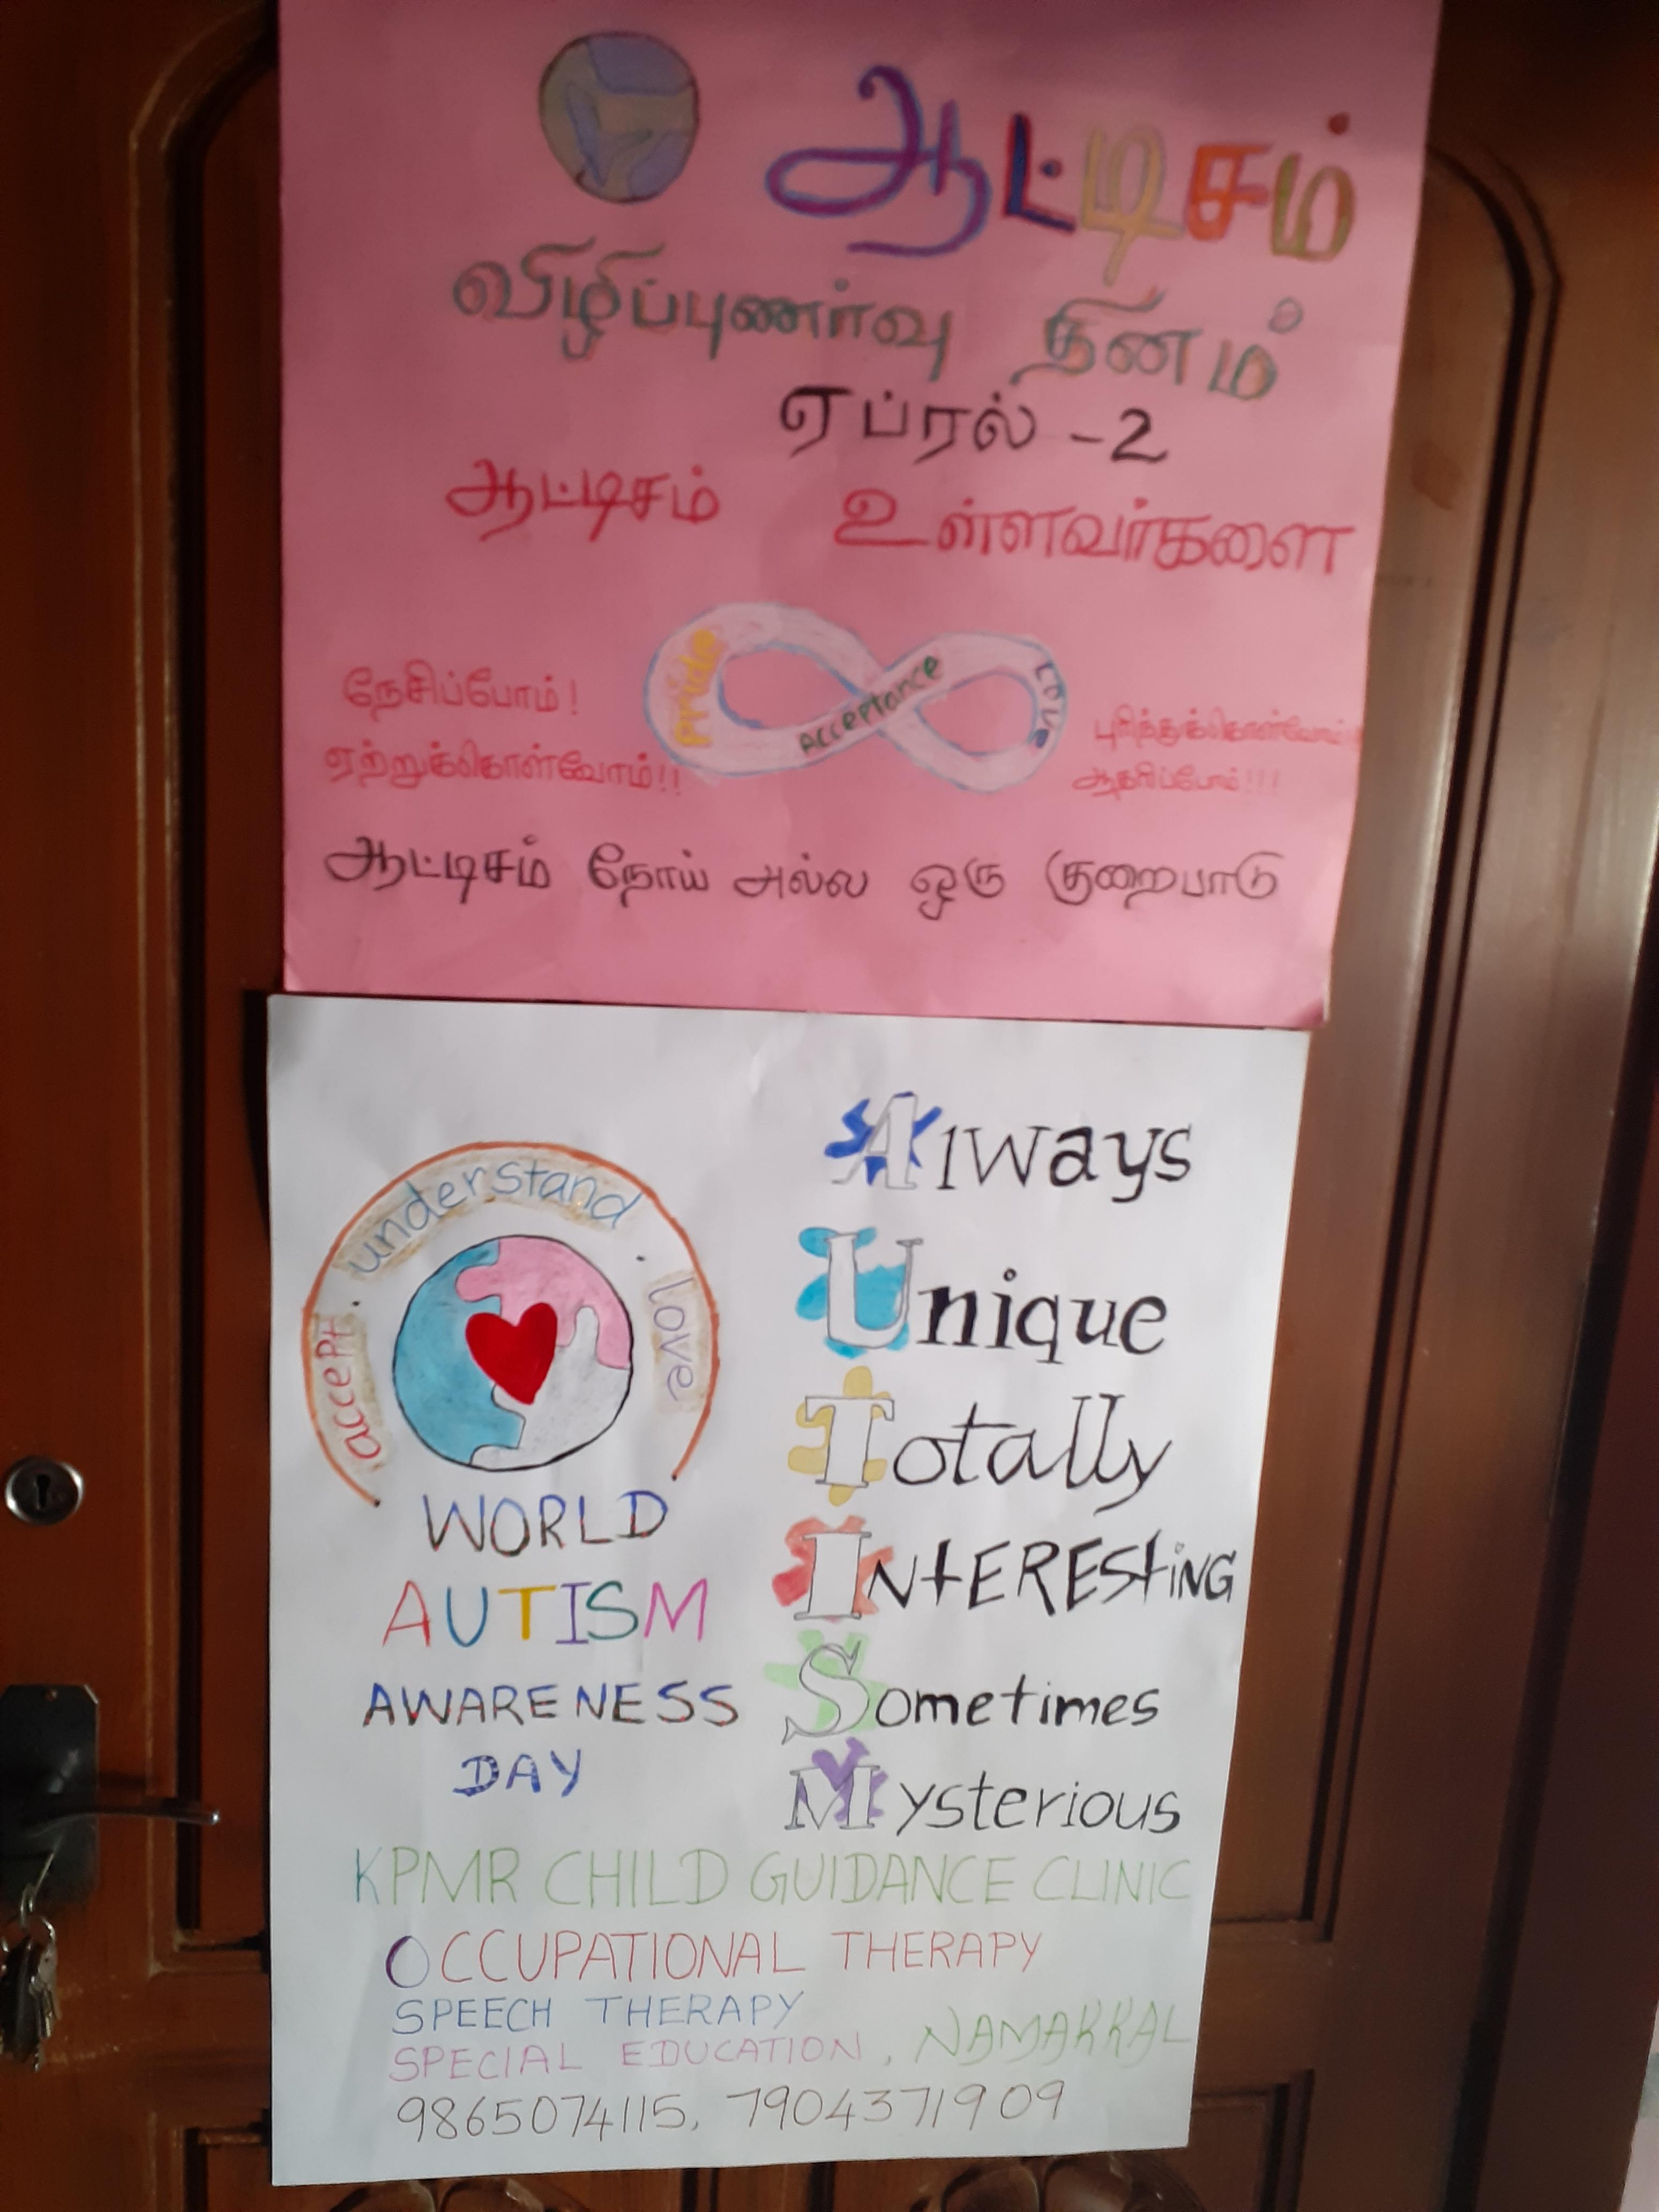 ஆட்டிசம்
விழிப்புணர்வு தினம்
ஏப்ரல் -2
ஆட்டிசம் உள்ளவர்களை
நேசிப்போம்!
ஏற்றுக்கொள்வோம்!!
Pride Acceptance Love
புரிந்துக்கொள்வோம்!!
ஆதரிப்போம்!!!
ஆட்டிசம் நோய் அல்ல ஒரு குறைபாடு
accept. understand. love
WORLD
AUTISM
AWARENESS
DAY
Always
Unique
Totally
INtEREStiNG
Sometimes
Mysterious
KPMR CHILD GUIDANCE CLINIC
OCCUPATIONAL THERAPY
SPEECH THERAPY
SPECIAL EDUCATION, NAMAKKAL
9865074115, 7904371909